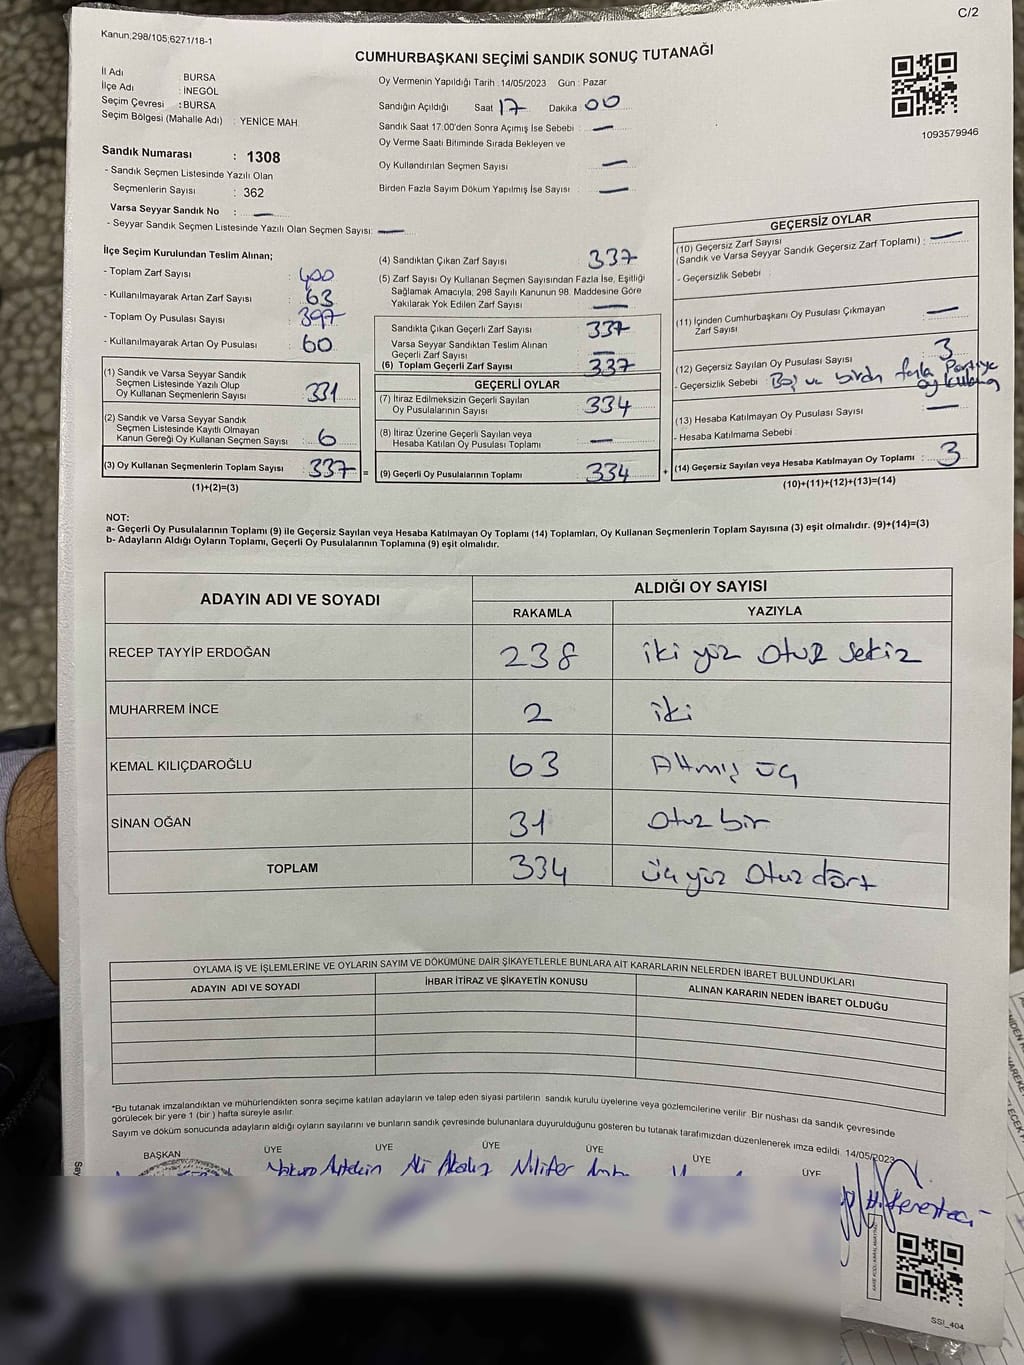 C/2
Kanun:298/105;6271/18-1
CUMHURBAŞKANI SEÇİMİ SANDIK SONUÇ TUTANAĞI
İl Adı : BURSA
İlçe Adı : İNEGÖL
Seçim Çevresi : BURSA
Seçim Bölgesi (Mahalle Adı) : YENİCE MAH.
Sandık Numarası : 1308
- Sandık Seçmen Listesinde Yazılı Olan
Seçmenlerin Sayısı : 362
Varsa Seyyar Sandık No : —
- Seyyar Sandık Seçmen Listesinde Yazılı Olan Seçmen Sayısı: —
Oy Vermenin Yapıldığı Tarih : 14/05/2023 Gün : Pazar
Sandığın Açıldığı Saat 17 Dakika 00
Sandık Saat 17:00'den Sonra Açımış İse Sebebi : —
Oy Verme Saati Bitiminde Sırada Bekleyen ve
Oy Kullandırılan Seçmen Sayısı : —
Birden Fazla Sayım Döküm Yapılmış İse Sayısı : —
1093579946
İlçe Seçim Kurulundan Teslim Alınan;
- Toplam Zarf Sayısı : 400
- Kullanılmayarak Artan Zarf Sayısı : 63
- Toplam Oy Pusulası Sayısı : 397
- Kullanılmayarak Artan Oy Pusulası : 60
(1) Sandık ve Varsa Seyyar Sandık
Seçmen Listesinde Yazılı Olup
Oy Kullanan Seçmenlerin Sayısı : 331
(2) Sandık ve Varsa Seyyar Sandık
Seçmen Listesinde Kayıtlı Olmayan
Kanun Gereği Oy Kullanan Seçmen Sayısı : 6
(3) Oy Kullanan Seçmenlerin Toplam Sayısı : 337 =
(1)+(2)=(3)
(4) Sandıktan Çıkan Zarf Sayısı : 337
(5) Zarf Sayısı Oy Kullanan Seçmen Sayısından Fazla İse, Eşitliği
Sağlamak Amacıyla, 298 Sayılı Kanunun 98. Maddesine Göre
Yakılarak Yok Edilen Zarf Sayısı : —
Sandıkta Çıkan Geçerli Zarf Sayısı : 337
Varsa Seyyar Sandıktan Teslim Alınan
Geçerli Zarf Sayısı : —
(6) Toplam Geçerli Zarf Sayısı : 337
GEÇERLİ OYLAR
(7) İtiraz Edilmeksizin Geçerli Sayılan
Oy Pusulalarının Sayısı : 334
(8) İtiraz Üzerine Geçerli Sayılan veya
Hesaba Katılan Oy Pusulası Toplamı : —
(9) Geçerli Oy Pusulalarının Toplamı : 334 +
GEÇERSİZ OYLAR
(10) Geçersiz Zarf Sayısı
(Sandık ve Varsa Seyyar Sandık Geçersiz Zarf Toplamı) : —
- Geçersizlik Sebebi :
(11) İçinden Cumhurbaşkanı Oy Pusulası Çıkmayan
Zarf Sayısı : —
(12) Geçersiz Sayılan Oy Pusulası Sayısı : 3
- Geçersizlik Sebebi : Boş ve birden fazla Partiye
(13) Hesaba Katılmayan Oy Pusulası Sayısı : —
- Hesaba Katılmama Sebebi :
(14) Geçersiz Sayılan veya Hesaba Katılmayan Oy Toplamı : 3
(10)+(11)+(12)+(13)=(14)
NOT:
a- Geçerli Oy Pusulalarının Toplamı (9) ile Geçersiz Sayılan veya Hesaba Katılmayan Oy Toplamı (14) Toplamları, Oy Kullanan Seçmenlerin Toplam Sayısına (3) eşit olmalıdır. (9)+(14)=(3)
b- Adayların Aldığı Oyların Toplamı, Geçerli Oy Pusulalarının Toplamına (9) eşit olmalıdır.
ADAYIN ADI VE SOYADI ALDIĞI OY SAYISI
RAKAMLA YAZIYLA
RECEP TAYYİP ERDOĞAN 238 iki yüz otuz sekiz
MUHARREM İNCE 2 iki
KEMAL KILIÇDAROĞLU 63 Altmış üç
SİNAN OĞAN 31 otuz bir
TOPLAM 334 üç yüz otuz dört
OYLAMA İŞ VE İŞLEMLERİNE VE OYLARIN SAYIM VE DÖKÜMÜNE DAİR ŞİKAYETLERLE BUNLARA AİT KARARLARIN NELERDEN İBARET BULUNDUKLARI
ADAYIN ADI VE SOYADI İHBAR İTİRAZ VE ŞİKAYETİN KONUSU ALINAN KARARIN NEDEN İBARET OLDUĞU
*Bu tutanak imzalandıktan ve mühürlendikten sonra seçime katılan adayların ve talep eden siyasi partilerin sandık kurulu üyelerine veya gözlemcilerine verilir. Bir nüshası da sandık çevresinde
görülecek bir yere 1 (bir) hafta süreyle asılır.
Sayım ve döküm sonucunda adayların aldığı oyların sayılarını ve bunların sandık çevresinde bulunanlara duyurulduğunu gösteren bu tutanak tarafımızdan düzenlenerek imza edildi. 14/05/2023
BAŞKAN ÜYE ÜYE ÜYE ÜYE ÜYE ÜYE
Ali Nilifer
SSI_404